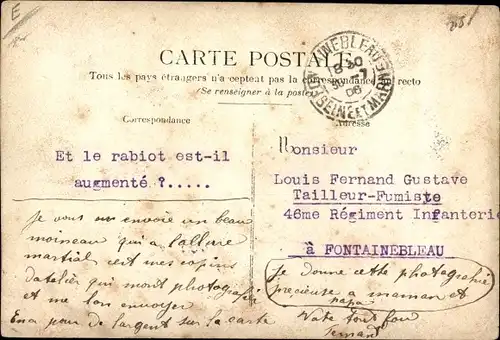 E
CARTE POSTALE
Tous les pays étrangers n'acceptent pas la correspondance au recto
(Se renseigner à la poste)
FONTAINEBLEAU
SEINE ET MARNE
18 30
30 -7
06
Correspondance
Adresse
Et le rabiot est-il
augmenté ?.....
Monsieur
Louis Fernand Gustave
Tailleur-Fumiste
46me Régiment Infanterie
à FONTAINEBLEAU
Je vous envoie un beau
moineau qui a l'allure
martial c'est mes copins
d'atelié qui mont photografié
et me lon envoyer
En a pour de l'argent sur la carte
Je donne cette photografie
précieuse a maman et
papa
Votre tout fou
Fernand